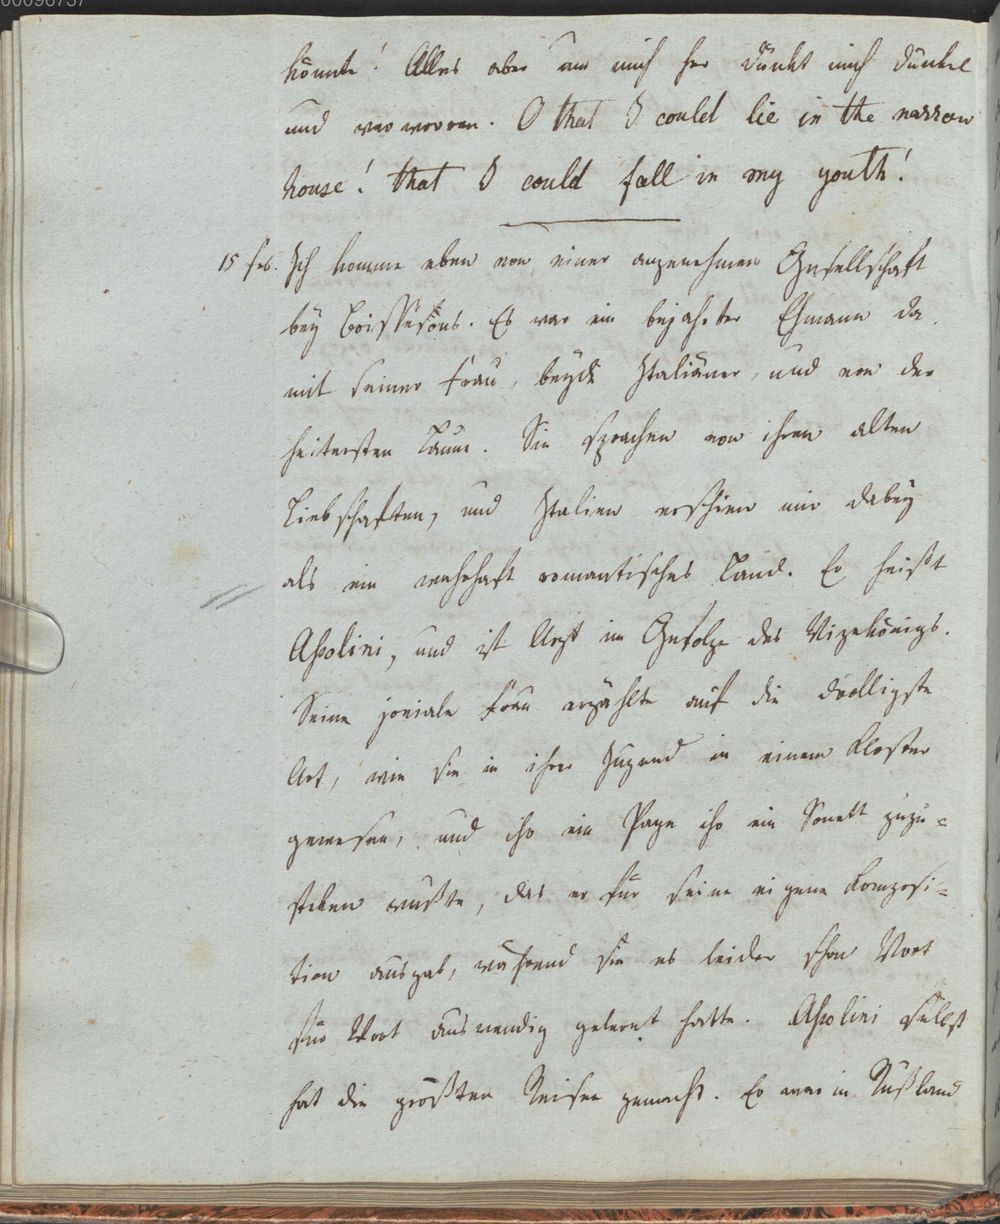 00096737
könnte! Alles aber um mich her dünkt mich dunkel
und verworren. O that I could lie in the narrow
house! that I could fall in my youth!
15 feb. Ich komme eben von einer angenehmen Gesellschaft
bey Boissesons. Es war ein bejahrter Ehmann da
mit seiner Frau, beyde Italiäner, und von der
heitersten Laune. Sie sprachen von ihren alten
Liebschaften, und Italien erschien mir dabey
als ein wahrhaft romantisches Land. Er heißt
Assolini, und ist Arzt im Gefolge des Vizekönigs.
Seine joviale Frau erzählte auf die drolligste
Art, wie sie in ihrer Jugend in einem Kloster
gewesen, und ihr ein Page ihr ein Sonett zuzu=
stecken wußte, das er für seine eigene Komposi=
tion ausgab, während sie es leider schon Wort
für Wort auswendig gelernt hatte. Assolini selbst
hat die größten Reisen gemacht. Er war in Rußland